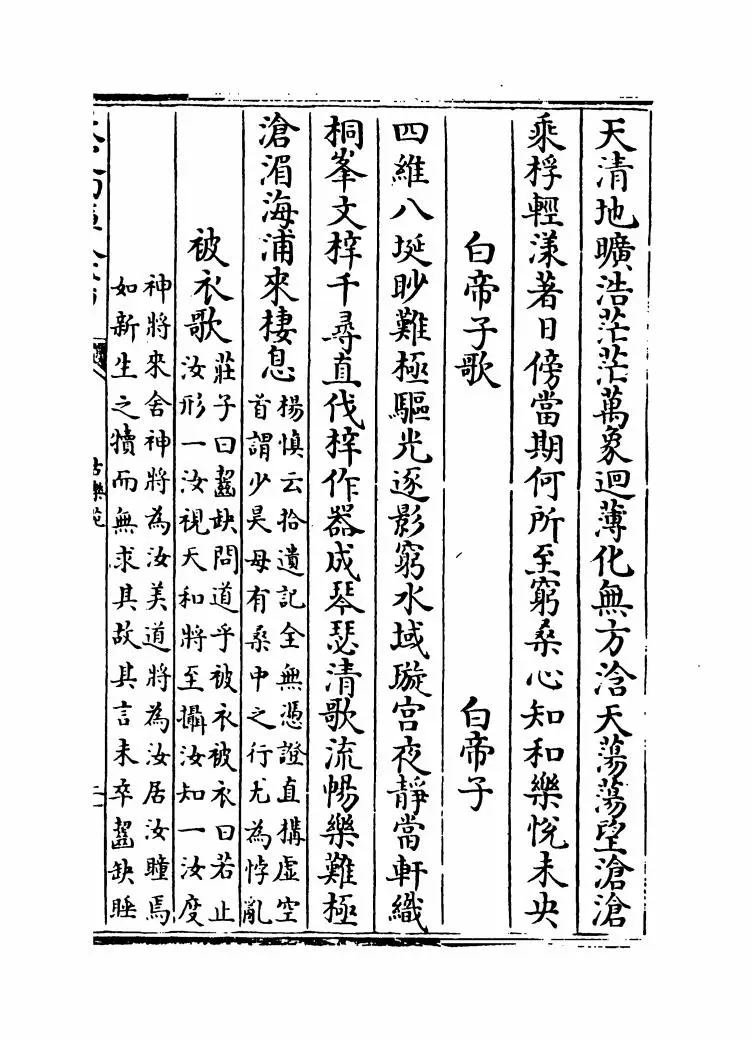 天清地曠浩茫茫萬象迴薄化無方浛天蕩蕩望滄滄
乘桴輕漾著日傍當期何所至窮桑心知和樂悅未央
白帝子歌　白帝子
四維八埏眇難極驅光逐影窮水域璇宮夜靜當軒織
桐峯文梓千尋直伐梓作器成琴瑟清歌流暢樂難極
滄湄海浦來棲息
楊慎云拾遺記全無憑證直搆虛空
首謂少昊母有桑中之行尤為悖亂
被衣歌
莊子曰齧缺問道乎被衣被衣曰若止
汝形一汝視天和將至攝汝知一汝度
神將來舍神將為汝美道將為汝居汝瞳焉
如新生之犢而無求其故其言未卒齧缺睡
古樂苑